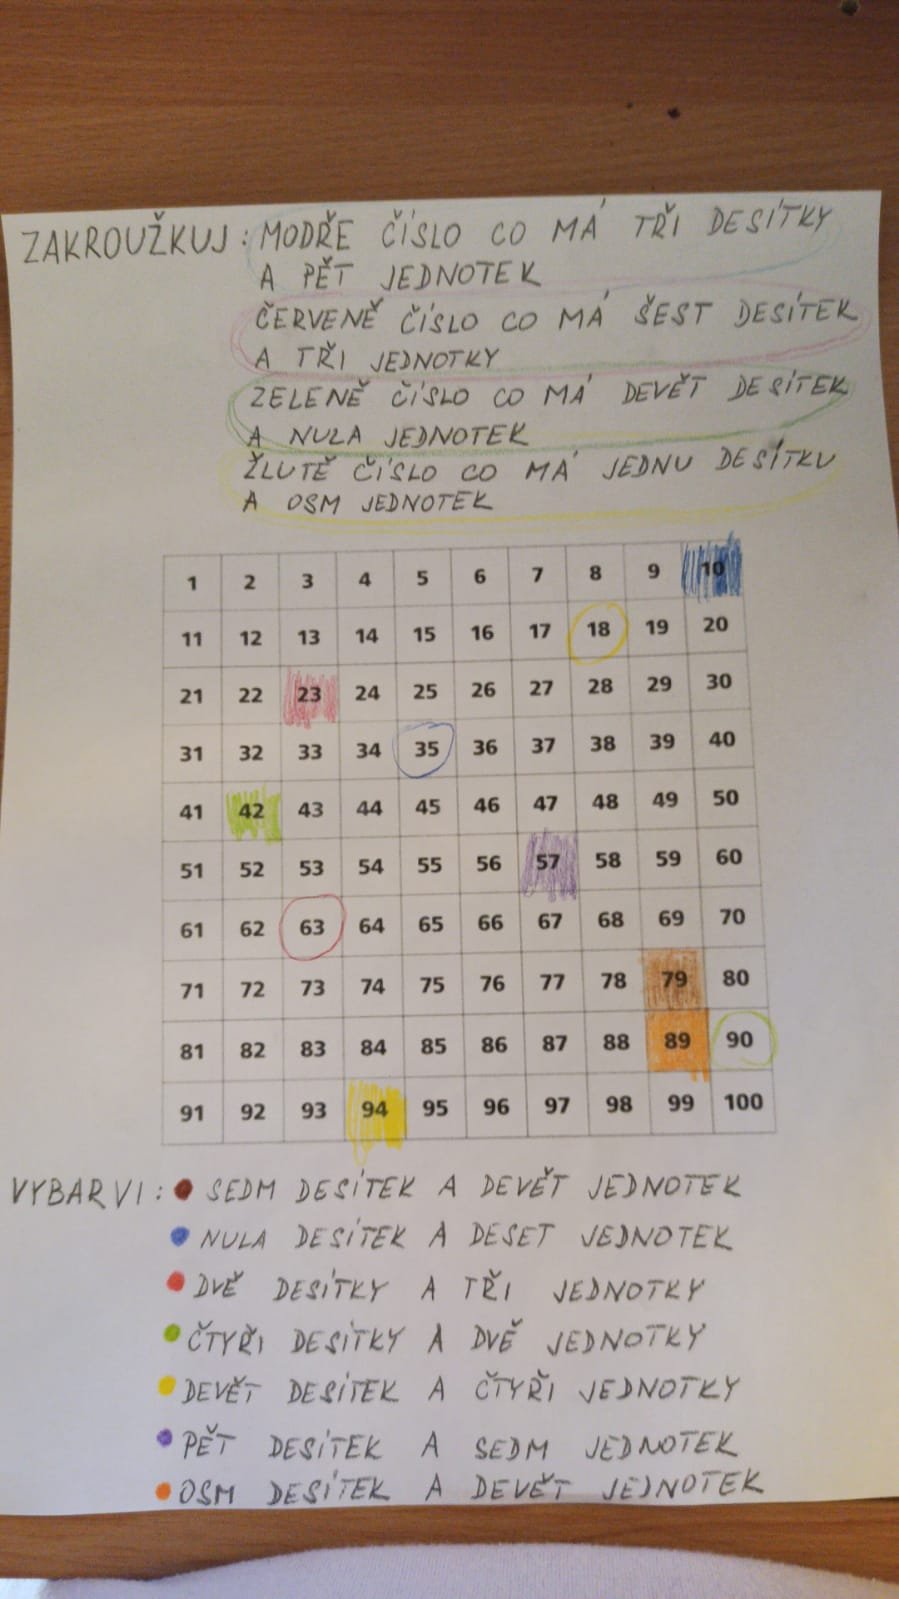 ZAKROUŽKUJ: MODŘE ČÍSLO CO MÁ TŘI DESÍTKY
A PĚT JEDNOTEK
ČERVENĚ ČÍSLO CO MÁ ŠEST DESÍTEK
A TŘI JEDNOTKY
ZELENĚ ČÍSLO CO MÁ DEVĚT DESÍTEK
A NULA JEDNOTEK
ŽLUTĚ ČÍSLO CO MÁ JEDNU DESÍTKU
A OSM JEDNOTEK
1 2 3 4 5 6 7 8 9 10
11 12 13 14 15 16 17 18 19 20
21 22 23 24 25 26 27 28 29 30
31 32 33 34 35 36 37 38 39 40
41 42 43 44 45 46 47 48 49 50
51 52 53 54 55 56 57 58 59 60
61 62 63 64 65 66 67 68 69 70
71 72 73 74 75 76 77 78 79 80
81 82 83 84 85 86 87 88 89 90
91 92 93 94 95 96 97 98 99 100
VYBARVI: SEDM DESÍTEK A DEVĚT JEDNOTEK
NULA DESÍTEK A DESET JEDNOTEK
DVĚ DESÍTKY A TŘI JEDNOTKY
ČTYŘI DESÍTKY A DVĚ JEDNOTKY
DEVĚT DESÍTEK A ČTYŘI JEDNOTKY
PĚT DESÍTEK A SEDM JEDNOTEK
OSM DESÍTEK A DEVĚT JEDNOTEK